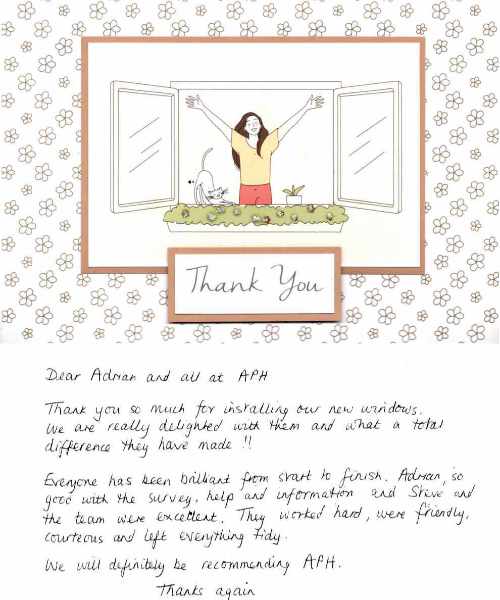 Thank You
Dear Adrian and all at APH
Thank you so much for installing our new windows.
We are really delighted with them and what a total
difference they have made !!
Everyone has been brilliant from start to finish. Adrian, so
good with the survey, help and information and Steve and
the team were excellent. They worked hard, were friendly,
courteous and left everything tidy.
We will definitely be recommending APH.
Thanks again